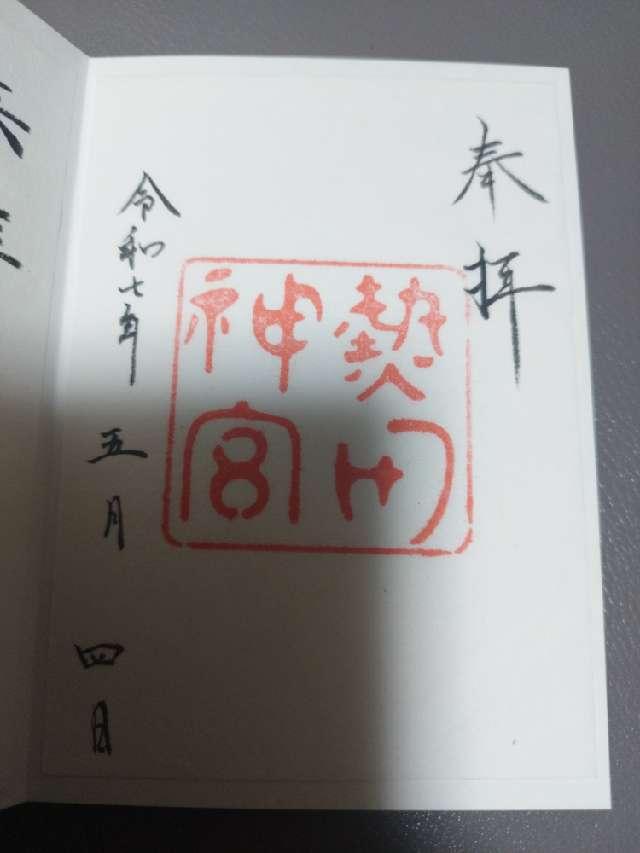 奉拝
熱田
神宮
令和七年五月四日